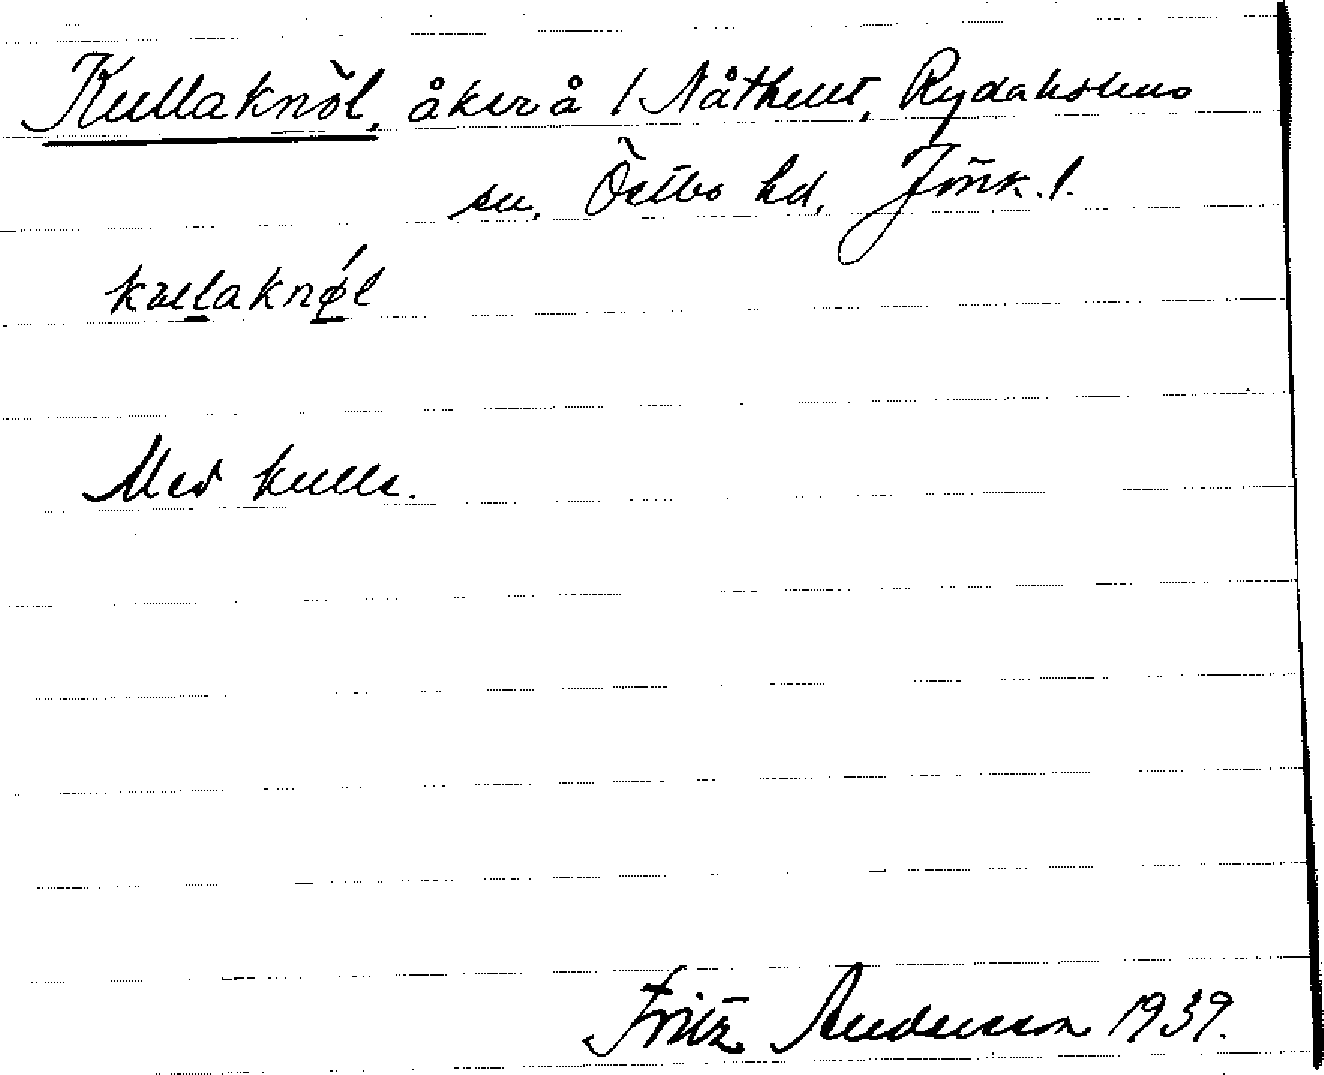 Kullaknöl, åker å Nåthult, Rydaholms
sn. Östbo hd, Jönk. l.
kullaknøl
Med kulle.
Fritz Andersson 1939.